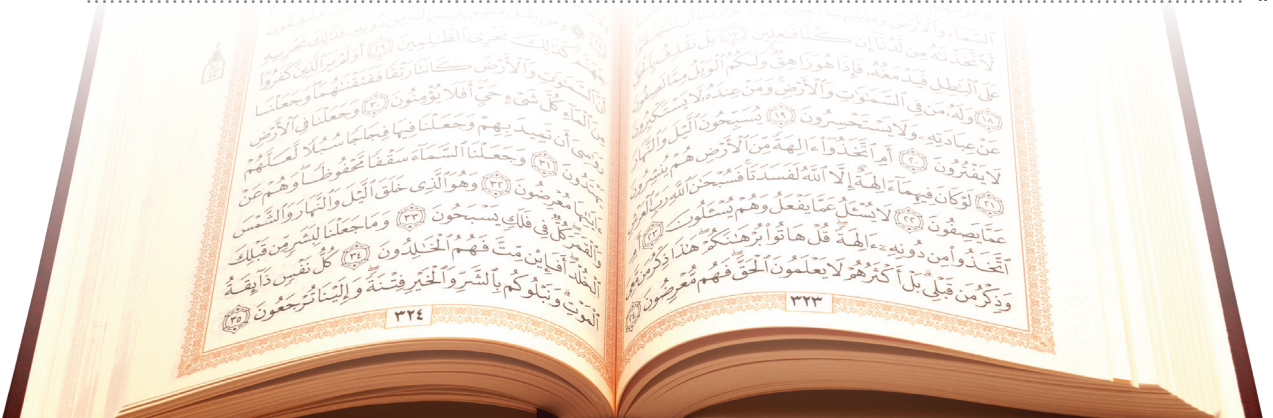 ٱلسَّمَآءَ وَٱلْأَرْضَ وَمَا
لَّٱتَّخَذْنَٰهُ مِن لَّدُنَّآ إِن كُنَّا فَٰعِلِينَ ١٧ بَلْ نَقْذِفُ بِٱلْحَقِّ
عَلَى ٱلْبَٰطِلِ فَيَدْمَغُهُۥ فَإِذَا هُوَ زَاهِقٌ وَلَكُمُ ٱلْوَيْلُ مِمَّا تَصِفُونَ
١٨ وَلَهُۥ مَن فِى ٱلسَّمَٰوَٰتِ وَٱلْأَرْضِ وَمَنْ عِندَهُۥ لَا يَسْتَكْبِرُونَ
عَنْ عِبَادَتِهِۦ وَلَا يَسْتَحْسِرُونَ ١٩ يُسَبِّحُونَ ٱلَّيْلَ وَٱلنَّهَارَ
لَا يَفْتُرُونَ ٢٠ أَمِ ٱتَّخَذُوٓا۟ ءَالِهَةً مِّنَ ٱلْأَرْضِ هُمْ يُنشِرُونَ
٢١ لَوْ كَانَ فِيهِمَآ ءَالِهَةٌ إِلَّا ٱللَّهُ لَفَسَدَتَا فَسُبْحَٰنَ ٱللَّهِ رَبِّ ٱلْعَرْشِ
عَمَّا يَصِفُونَ ٢٢ لَا يُسْـَٔلُ عَمَّا يَفْعَلُ وَهُمْ يُسْـَٔلُونَ ٢٣ أَمِ
ٱتَّخَذُوا۟ مِن دُونِهِۦٓ ءَالِهَةً قُلْ هَاتُوا۟ بُرْهَٰنَكُمْ هَٰذَا ذِكْرُ مَن مَّعِىَ
وَذِكْرُ مَن قَبْلِى بَلْ أَكْثَرُهُمْ لَا يَعْلَمُونَ ٱلْحَقَّ فَهُم مُّعْرِضُونَ ٢٤
٣٢٣
جَهَنَّمَ كَذَٰلِكَ نَجْزِى ٱلظَّٰلِمِينَ ٢٩ أَوَلَمْ يَرَ ٱلَّذِينَ كَفَرُوٓا۟
أَنَّ ٱلسَّمَٰوَٰتِ وَٱلْأَرْضَ كَانَتَا رَتْقًا فَفَتَقْنَٰهُمَا وَجَعَلْنَا
مِنَ ٱلْمَآءِ كُلَّ شَىْءٍ حَىٍّ أَفَلَا يُؤْمِنُونَ ٣٠ وَجَعَلْنَا فِى ٱلْأَرْضِ
رَوَٰسِىَ أَن تَمِيدَ بِهِمْ وَجَعَلْنَا فِيهَا فِجَاجًا سُبُلًا لَّعَلَّهُمْ
يَهْتَدُونَ ٣١ وَجَعَلْنَا ٱلسَّمَآءَ سَقْفًا مَّحْفُوظًا وَهُمْ عَنْ
ءَايَٰتِهَا مُعْرِضُونَ ٣٢ وَهُوَ ٱلَّذِى خَلَقَ ٱلَّيْلَ وَٱلنَّهَارَ وَٱلشَّمْسَ
وَٱلْقَمَرَ كُلٌّ فِى فَلَكٍ يَسْبَحُونَ ٣٣ وَمَا جَعَلْنَا لِبَشَرٍ مِّن قَبْلِكَ
ٱلْخُلْدَ أَفَإِي۟ن مِّتَّ فَهُمُ ٱلْخَٰلِدُونَ ٣٤ كُلُّ نَفْسٍ ذَآئِقَةُ
ٱلْمَوْتِ وَنَبْلُوكُم بِٱلشَّرِّ وَٱلْخَيْرِ فِتْنَةً وَإِلَيْنَا تُرْجَعُونَ ٣٥
٣٢٤